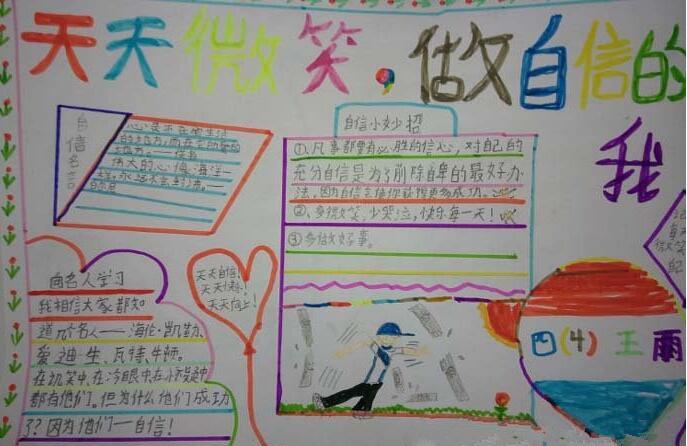 天天微笑,做自信的
我
自信名言
心是不在
伟大的心胸,
自信小妙招
①凡事都要有必胜的信心,对自己的
充分自信是为了消除自卑的最好办
法,因为自信会使你获得更多成功。
②多微笑,少哭泣,快乐每一天!
③多做好事。
向名人学习
我相信大家都知
道几个名人——海伦·凯勒、
爱迪生、瓦特、牛顿。
在讥笑中,在冷眼中,在
都有他们。但为什么他们成功
了?因为他们—自信!
天天自信!
天天快乐!
天天向上!
四(4) 王雨
每天
微笑
自己